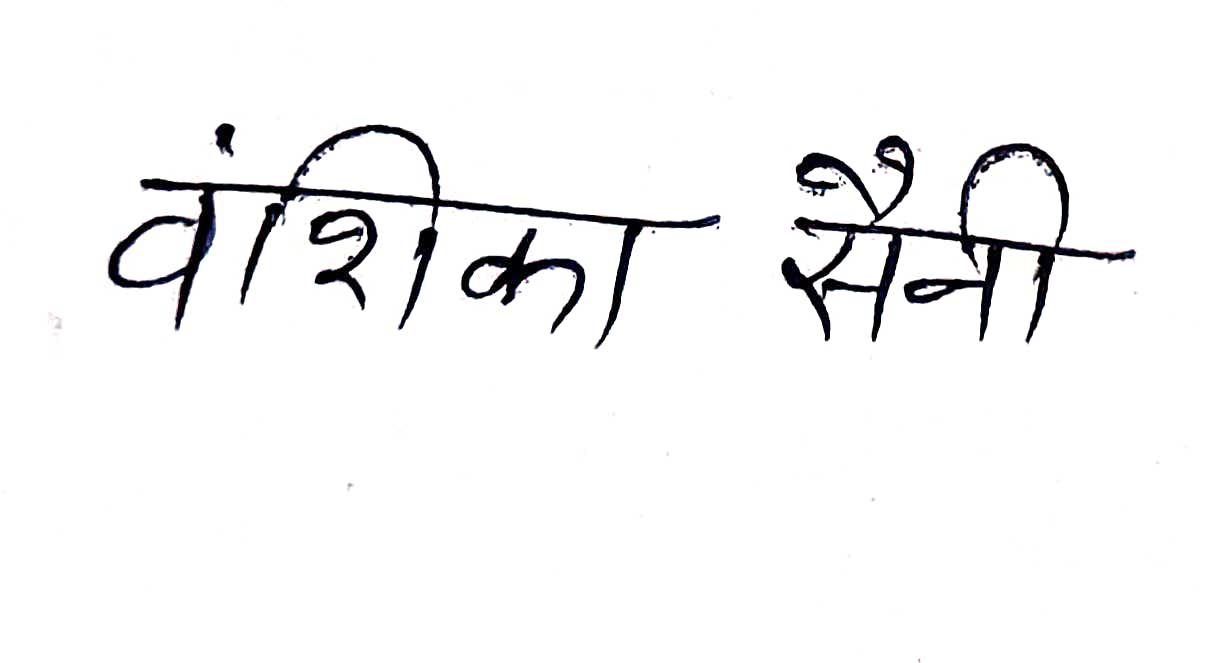 वंशिका सैनी